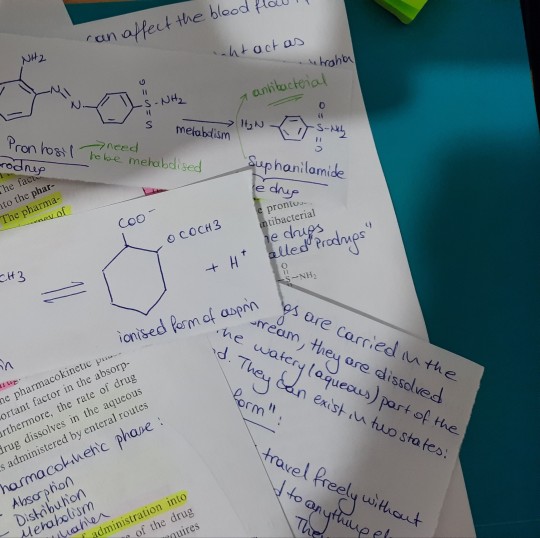 can affect the blood flow
ht act as
NH2
N
N
O
S-NH2
S
metabolism
antibacterial
H2N
O
S-NH2
O
Prontosil → need
to be metabolised
rodrug
Suphanilamide
e drug
The fact
to the phar-
The pharma-
ncy of
e pronto
ntibacterial
ne drugs
alled "Prodrugs"
O
S-NH2
COO-
OCOCH3
CH3
+ H+
ionised form of asprin
in
gs are carried in the
ream, they are dissolved
he watery (aqueous) part of the
d. They can exist in two states:
form":
travel freely without
d to anything el
The
ne pharmacokinetic
ortant factor in the absorp-
urthermore, the rate of drug
drug dissolves in the aqueous
s administered by enteral routes
harmacokinetic phase:
- Absorption
- Distribution
- Metabolism
administration into
e of the drug
quires